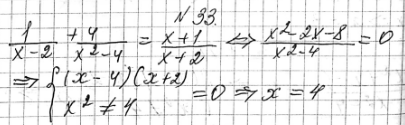 №33.
1/(x-2) + 4/(x²-4) = (x+1)/(x+2) ⇔ (x²-2x-8)/(x²-4) = 0
⇒ { (x-4)(x+2) = 0 ⇒ x = 4
x² ≠ 4